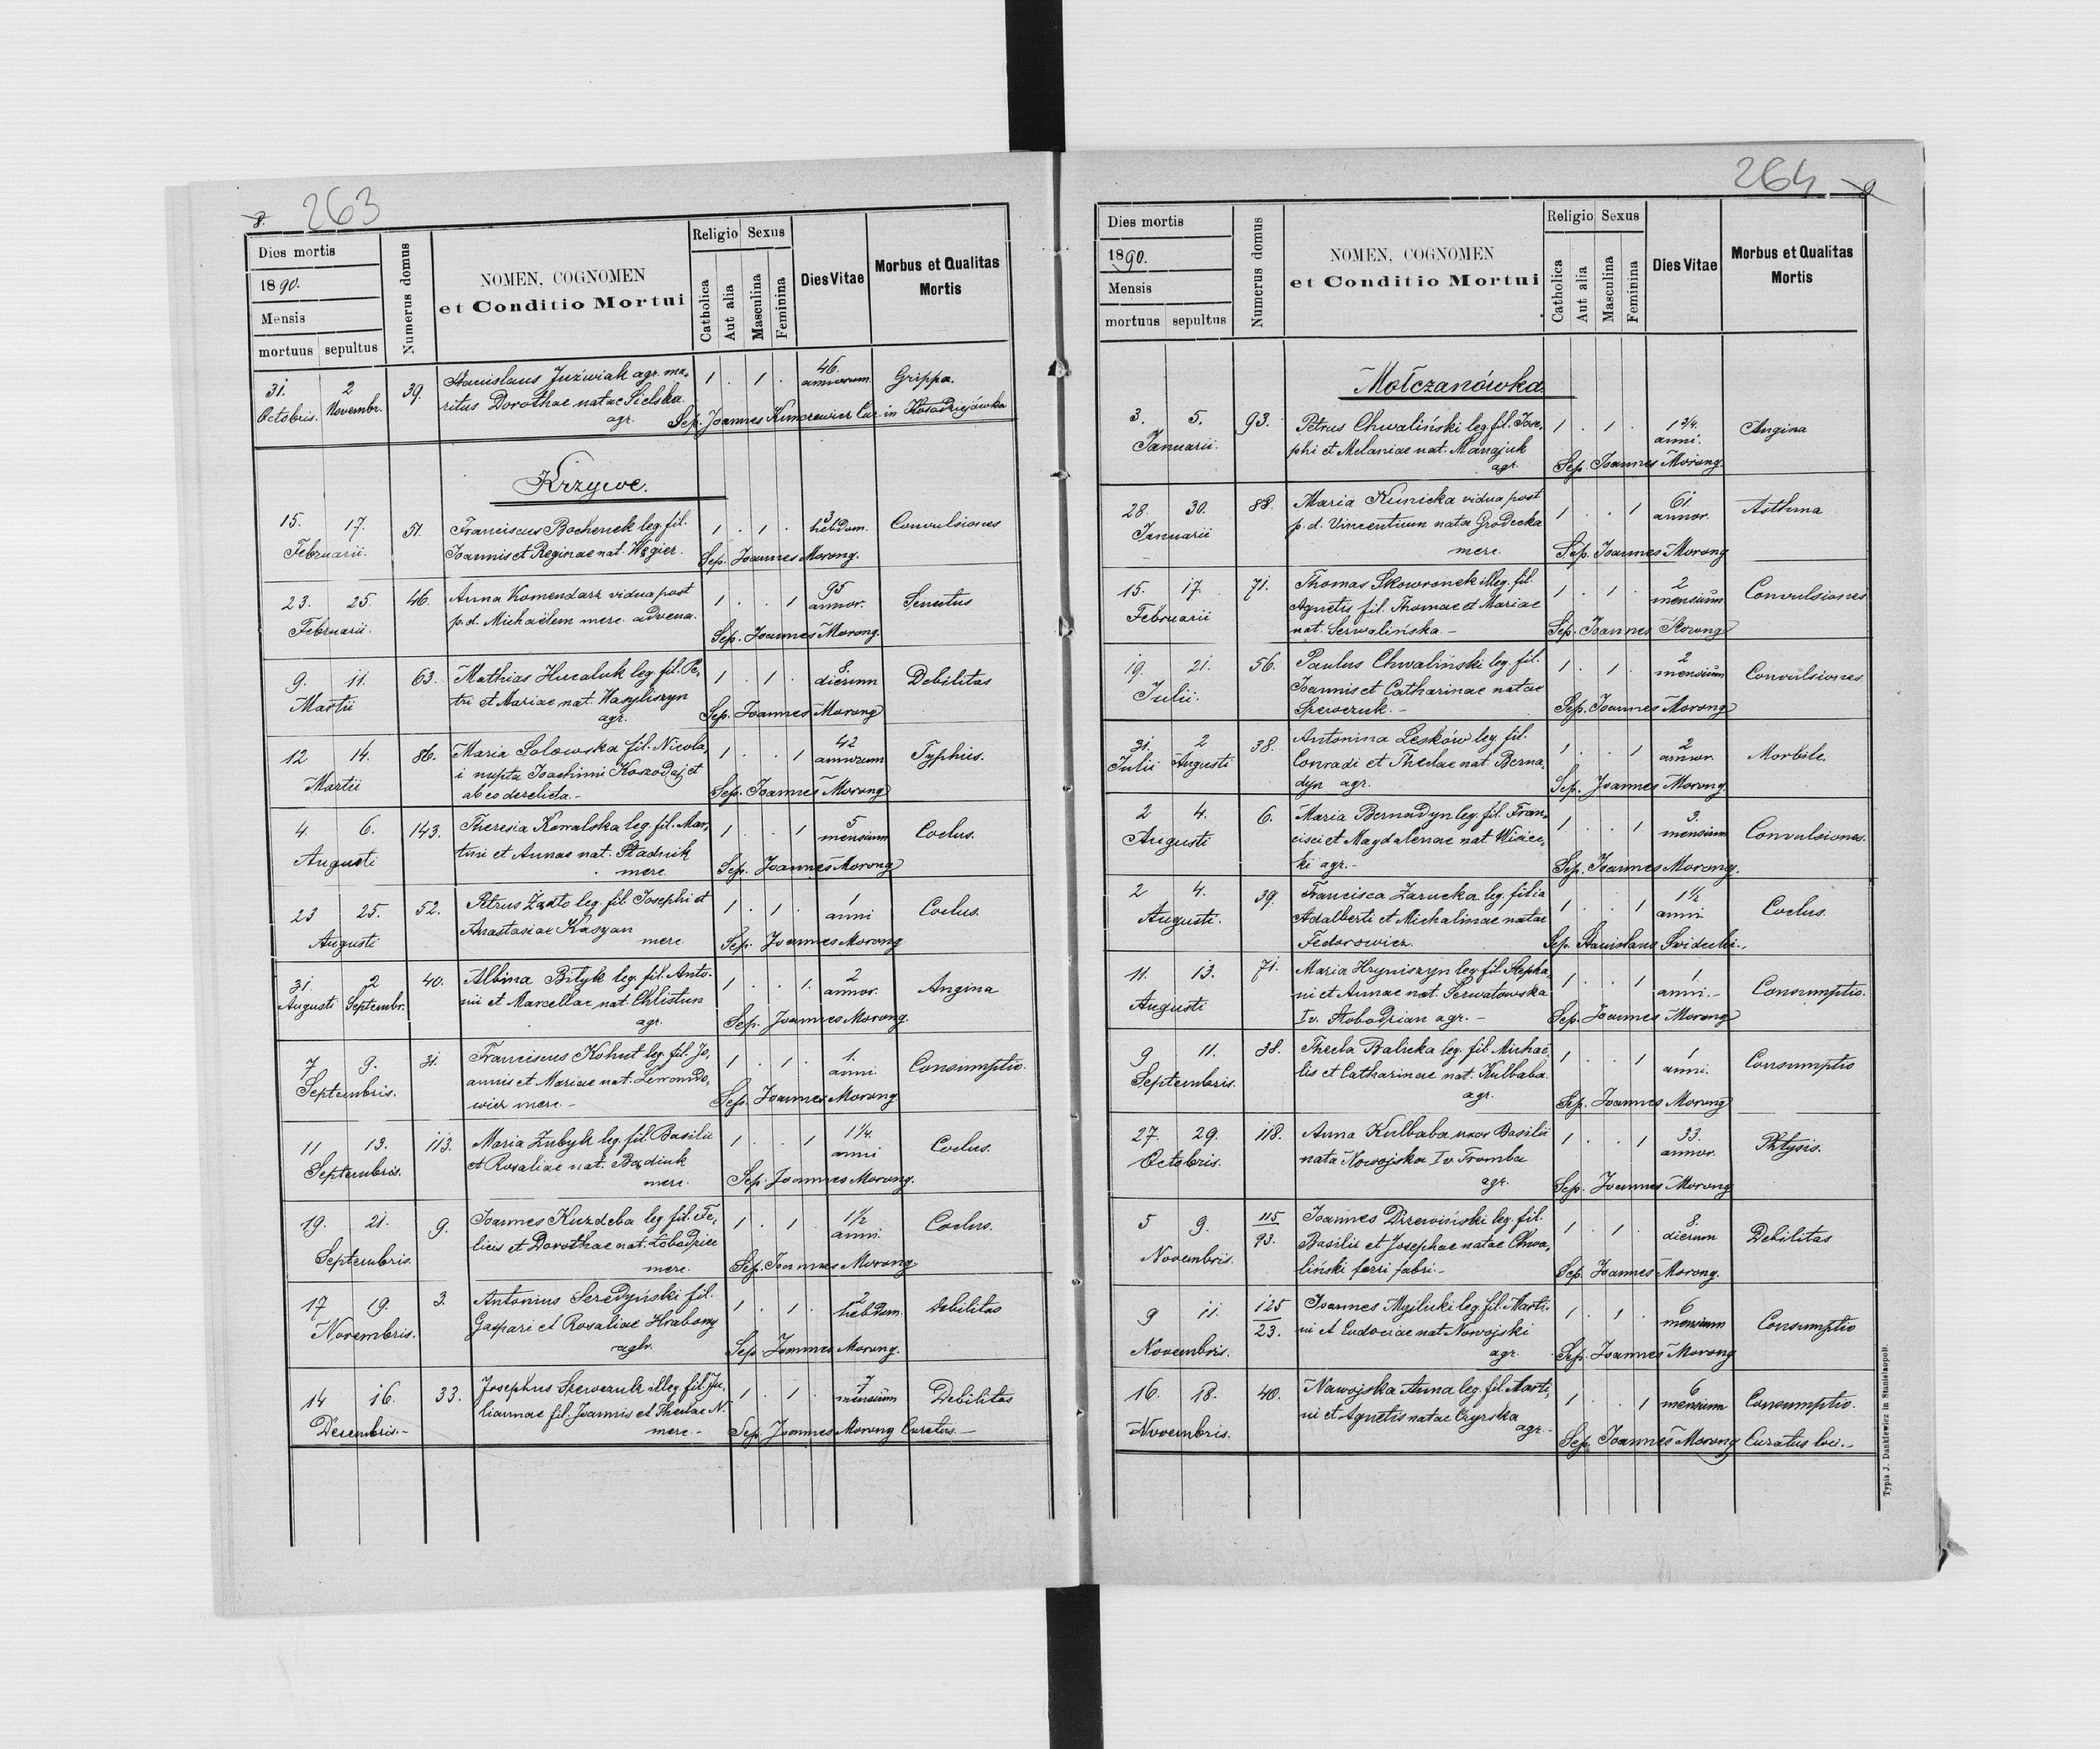 8. 263
Dies mortis
1890.
Mensis
mortuus sepultus
Numerus domus
NOMEN, COGNOMEN
et Conditio Mortui
Religio Sexus
Catholica
Aut alia
Masculina
Feminina
Dies Vitae
Morbus et Qualitas
Mortis
31. 2 39. Stanislaus Juźwiak agr. ma- 1 . 1 . 46. Grippa.
Octobris. Novembr. ritus Dorothae natae Sielska annorum
agr. Sep. Joannes Cur. in
Krzywe.
15. 17. 51. Franciscus Bochenek leg. fil. 1 . 1 . 3 hebdom. Convulsiones
Februarii. Joannis et Reginae nat. Węgier. Sep. Joannes Morong.
23. 25. 46. Anna Komendarz vidua post 1 . . 1 95 annor. Senectus
Februarii. p.d. Michaëlem merc. advena. Sep. Joannes Morong.
9. 11. 63. Mathias Hucaluk leg. fil. Pe- 1 . 1 . 8. dierum Debilitas
Martii tri et Mariae nat. Wasyliszyn
agr. Sep. Joannes Morong
12 14. 86. Maria Solowska fil. Nicola- 1 . . 1 42 annorum Typhus.
Martii i nupta Joachimi Koszodaj et
ab eo derelicta.- Sep. Joannes Morong
4. 6. 143. Theresia Kowalska leg. fil. Mar- 1 . . 1 5 mensium Coclus.
Augusti tini et Annae nat. Stadnik
merc. Sep. Joannes Morong
23 25. 52. Petrus leg. fil. Josephi et 1 . 1 . 1 anni Coclus.
Augusti Anastasiae Kasyan
merc. Sep. Joannes Morong
31. 2 40. Albina Bilyk leg. fil. Anto- 1 . . 1. 2 annor. Angina
Augusti Septembr. nii et Marcellae nat. Chlistun
agr. Sep. Joannes Morong.
7 9. 31. Franciscus Kohut leg. fil. Jo- 1 . 1 . 1. anni. Consumptio.
Septembris. annis et Mariae nat. Lewando-
wicz merc.- Sep. Joannes Morong
11 13. 113. Maria Zubyk leg. fil. Basilii 1 . . 1 1 1/4. anni Coclus.
Septembris. et Rosaliae nat.
merc. Sep. Joannes Morong.
19. 21. 9. Joannes Kuzdeba leg. fil. Fe- 1 . 1 . 1 1/2 anni. Coclus.
Septembris. licis et Dorothae nat. Łobodziec
merc. Sep. Joannes Morong
17 19. 3. Antonius Seredyński fil. 1 . 1 . 2 hebdom. Debilitas
Novembris. Gaspari et Rosaliae Hrabowy
agr. Sep. Joannes Morong.
14 16. 33. Josephus Szewczuk illeg. fil. Ju- 1 . 1 . 7 mensium Debilitas
Decembris.- liannae fil. Joannis et Theclae N.
merc.- Sep. Joannes Morong Curatus.-
264 9
Dies mortis
1890.
Mensis
mortuus sepultus
Numerus domus
NOMEN, COGNOMEN
et Conditio Mortui
Religio Sexus
Catholica
Aut alia
Masculina
Feminina
Dies Vitae
Morbus et Qualitas
Mortis
Mołczanówka
3. 5. 93. Petrus Chwaliński leg. fil. Jose- 1 . 1 . 1 3/4. anni. Angina
Januarii. phi et Melaniae nat. Manajuk
agr. Sep. Joannes Morong.
28. 30. 88. Maria Kunicka vidua post 1 . . 1 61 annor. Asthma
Januarii p.d. Vincentium nata Grodecka
merc. Sep. Joannes Morong
15. 17. 71. Thomas Skowronek illeg. fil. 1 . 1 . 2 mensium Convulsiones
Februarii Agnetis fil. Thomae et Mariae
nat. Serwalińska.- Sep. Joannes Morong
19. 21. 56. Paulus Chwaliński leg. fil. 1 . 1 . 2 mensium Convulsiones
Julii. Joannis et Catharinae natae
Szewczuk.- Sep. Joannes Morong
31. 2 38. Antonina Lesków leg. fil. 1 . . 1 2 annor. Morbile.
Julii Augusti Conradi et Theclae nat. Berna-
dyn agr. Sep. Joannes Morong.
2 4. 6. Maria Bernadyn leg. fil. Fran- 1 . . 1 3. mensium Convulsiones.
Augusti cisci et Magdalenae nat. Wisiec-
ki agr.- Sep. Joannes Morong.
2 4. 39. Francisca Zarucka leg. filia 1 . . 1 1 1/2 anni Coclus.
Augusti. Adalberti et Michalinae natae
Fedorowicz. Sep. Stanislaus
11. 13. 71. Maria Hryniszyn leg. fil. Stepha- 1 . . 1 1 anni.- Consumptio.
Augusti ni et Annae nat. Serwatowska
Iv. Słobodzian agr.- Sep. Joannes Morong
9 11. 38. Thecla Balicka leg. fil. Michaë- 1 . . 1 1 anni. Consumptio
Septembris. lis et Catharinae nat. Kulbaba.
agr. Sep. Joannes Morong
27. 29. 118. Anna Kulbaba uxor Basilii 1 . . 1 33. annor. Phtysis.
Octobris. nata Nowojska Iv. Tromba
agr. Sep. Joannes Morong
5 9. 115/93. Joannes Drzewiński leg. fil. 1 . 1 . 8. dierum Debilitas
Novembris. Basilii et Josephae natae Chwa-
liński ferri fabri.- Sep. Joannes Morong.
9 11. 125/23. Joannes Myślicki leg. fil. Marti- 1 . 1 . 6 mensium Consumptio
Novembris. ni et Eudociae nat Nowojski
agr. Sep. Joannes Morong
16. 18. 40. Nawojska Anna leg. fil. Marti- 1 . . 1 6 mensium Consumptio.
Novembris. ni et Agnetis natae Czyrska
agr.- Sep. Joannes Morong Curatus loci.-
Typis J. Dankiewicz in Stanislaopoli.